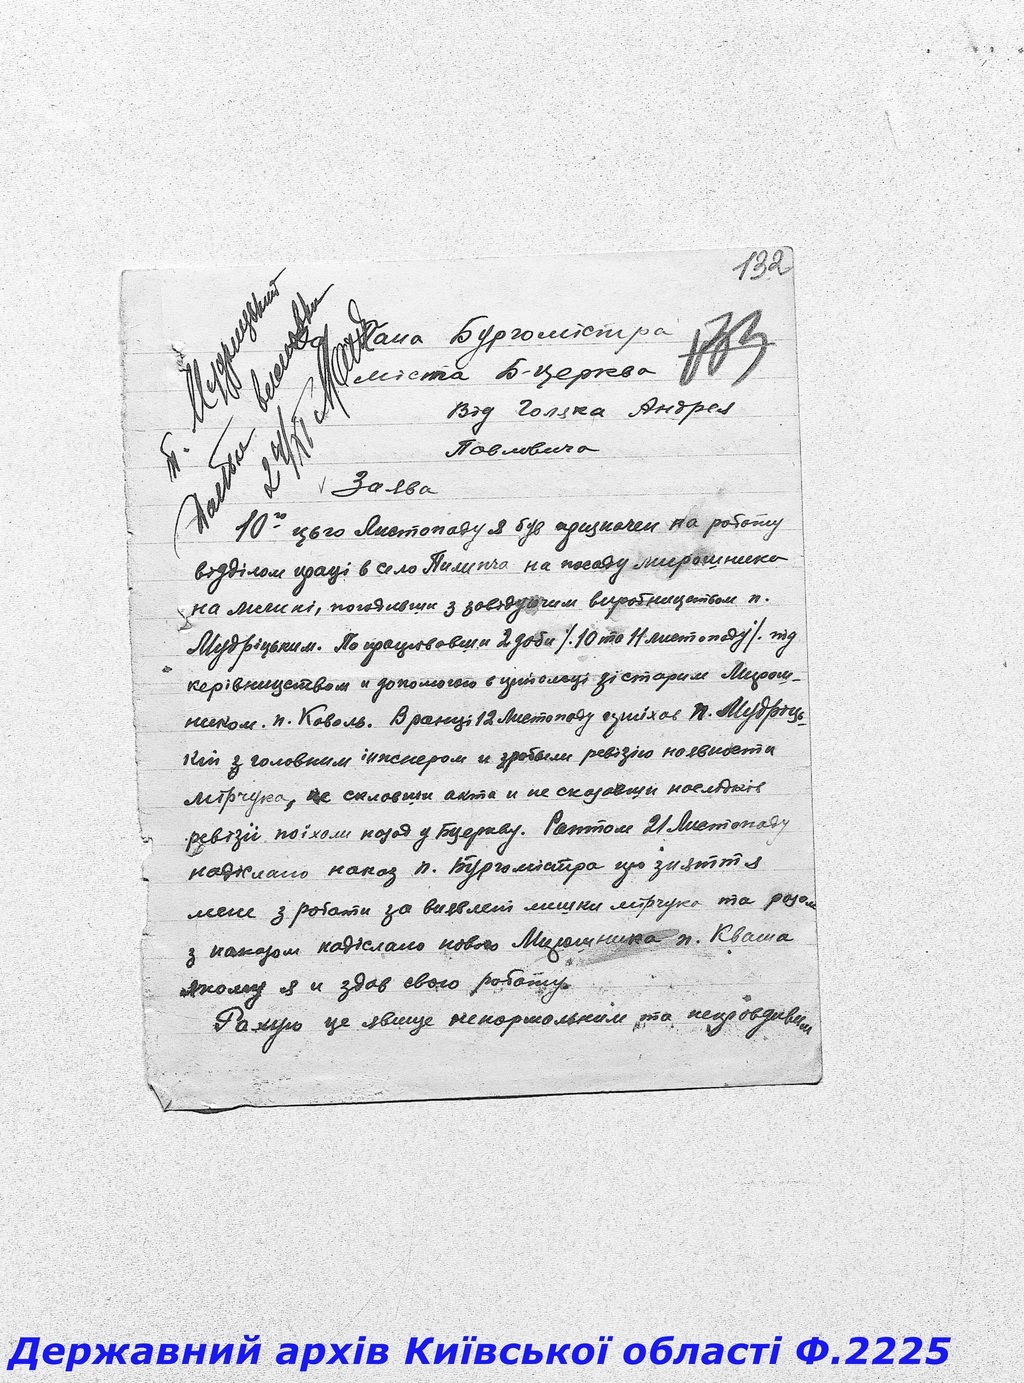 132
133
п. Мудрицький
24/XI
До Пана Бургомістра
міста Б-Церква
Від Голяка Андрея
Павловича
Заява
10го цього Листопаду я був призначен на роботу
відділом праці в село Пилипча на посаду мирошника
на млині, погодивши з завідуючим виробництвом п.
Мудріцьким. Попрацювавши 2 доби /. 10 та 11 листопаду /. під
керівництвом и допомогою в цій праці зі старим Мирош-
ником. п. Коваль. В ранці 12 Листопаду приїхав п. Мудріць-
кий з головним інженером и зробили ревізію наявности
мірчука, не склавши акта и не сказавши наслідків
ревізії поїхали назад у Бцеркву. Раптом 21 Листопаду
надіслано наказ п. Бургомістра що зняття
мене з работи за виявлені лишки мірчука та разом
з наказом надіслано нового Мирошника п. Кваша
якому я и здав свою работу.
Рахую це явище ненормальним та неправдивим
Державний архів Київської області Ф.2225